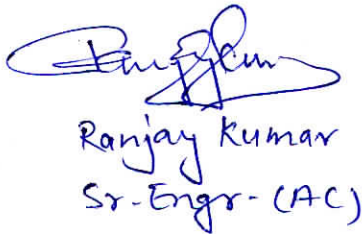 Ranjay Kumar
Sr-Engr-(AC)